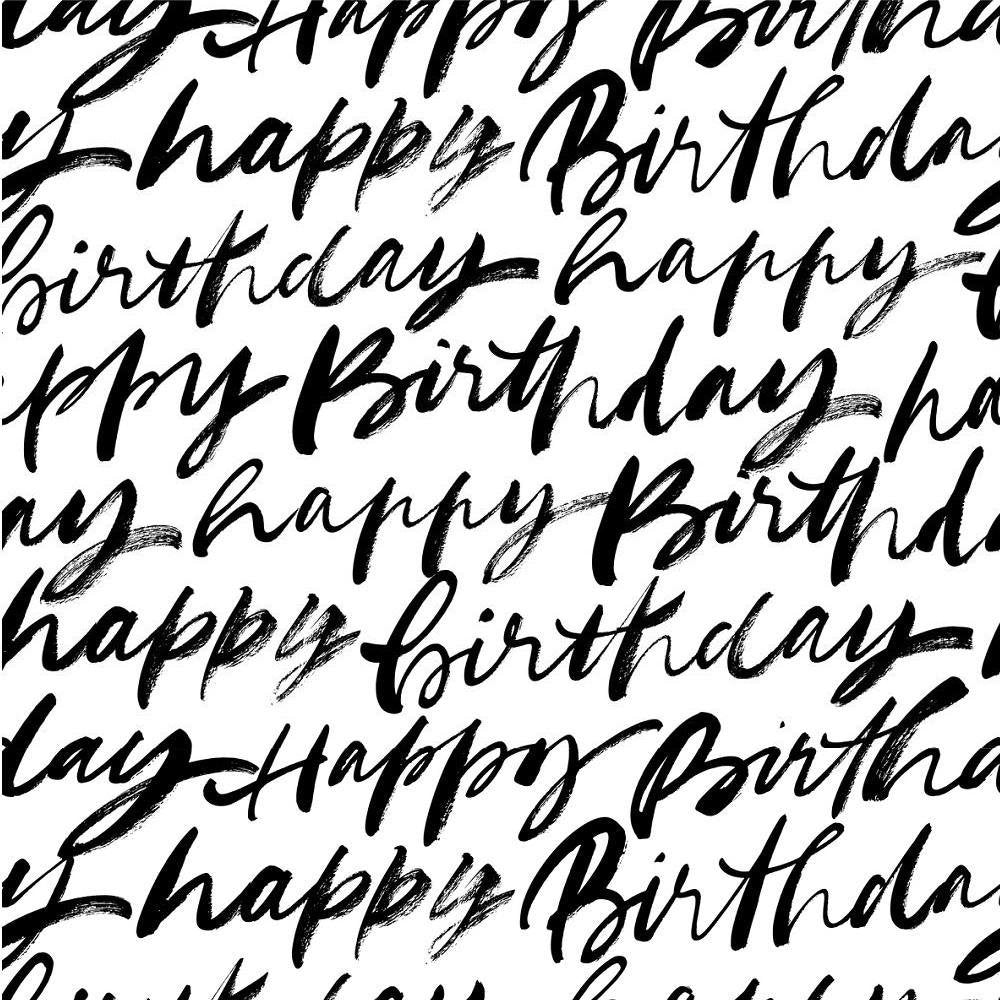 day Happy Birthd
y happy Birthday
birthday happy b
ppy Birthday ha
ay happy Birthd
happy birthday h
day Happy Birthd
y happy Birthday
birthday happy